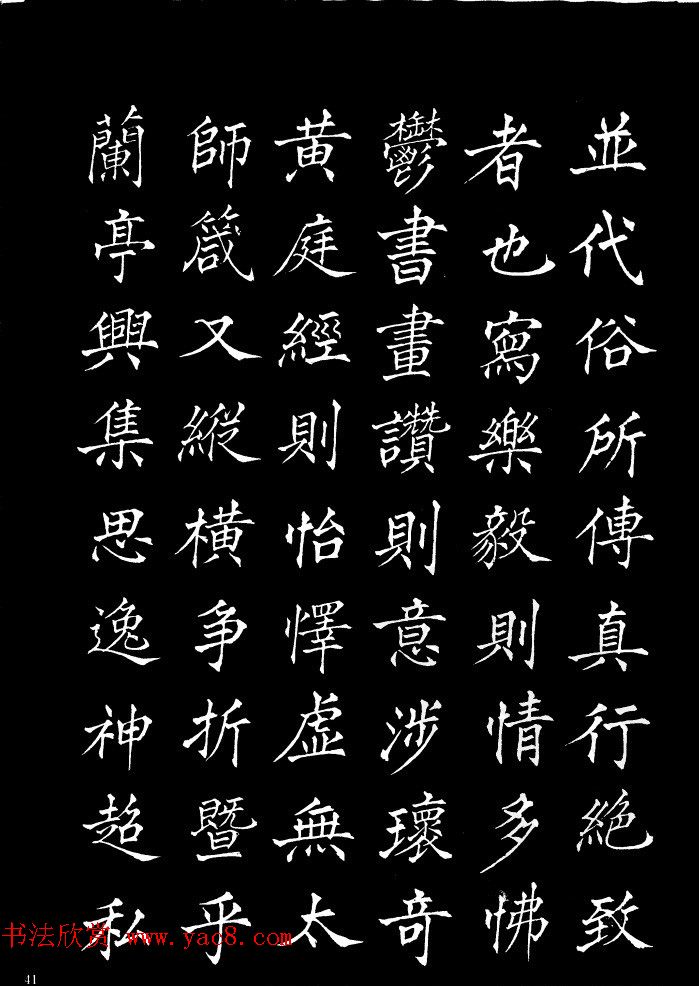 並代俗所傳真行絶致
者也寫樂毅則情多怫
鬱書畫讚則意涉瓌奇
黄庭經則怡懌虚無太
師箴又縱橫争折暨乎
蘭亭興集思逸神超私
书法欣赏 www.yac8.com
41